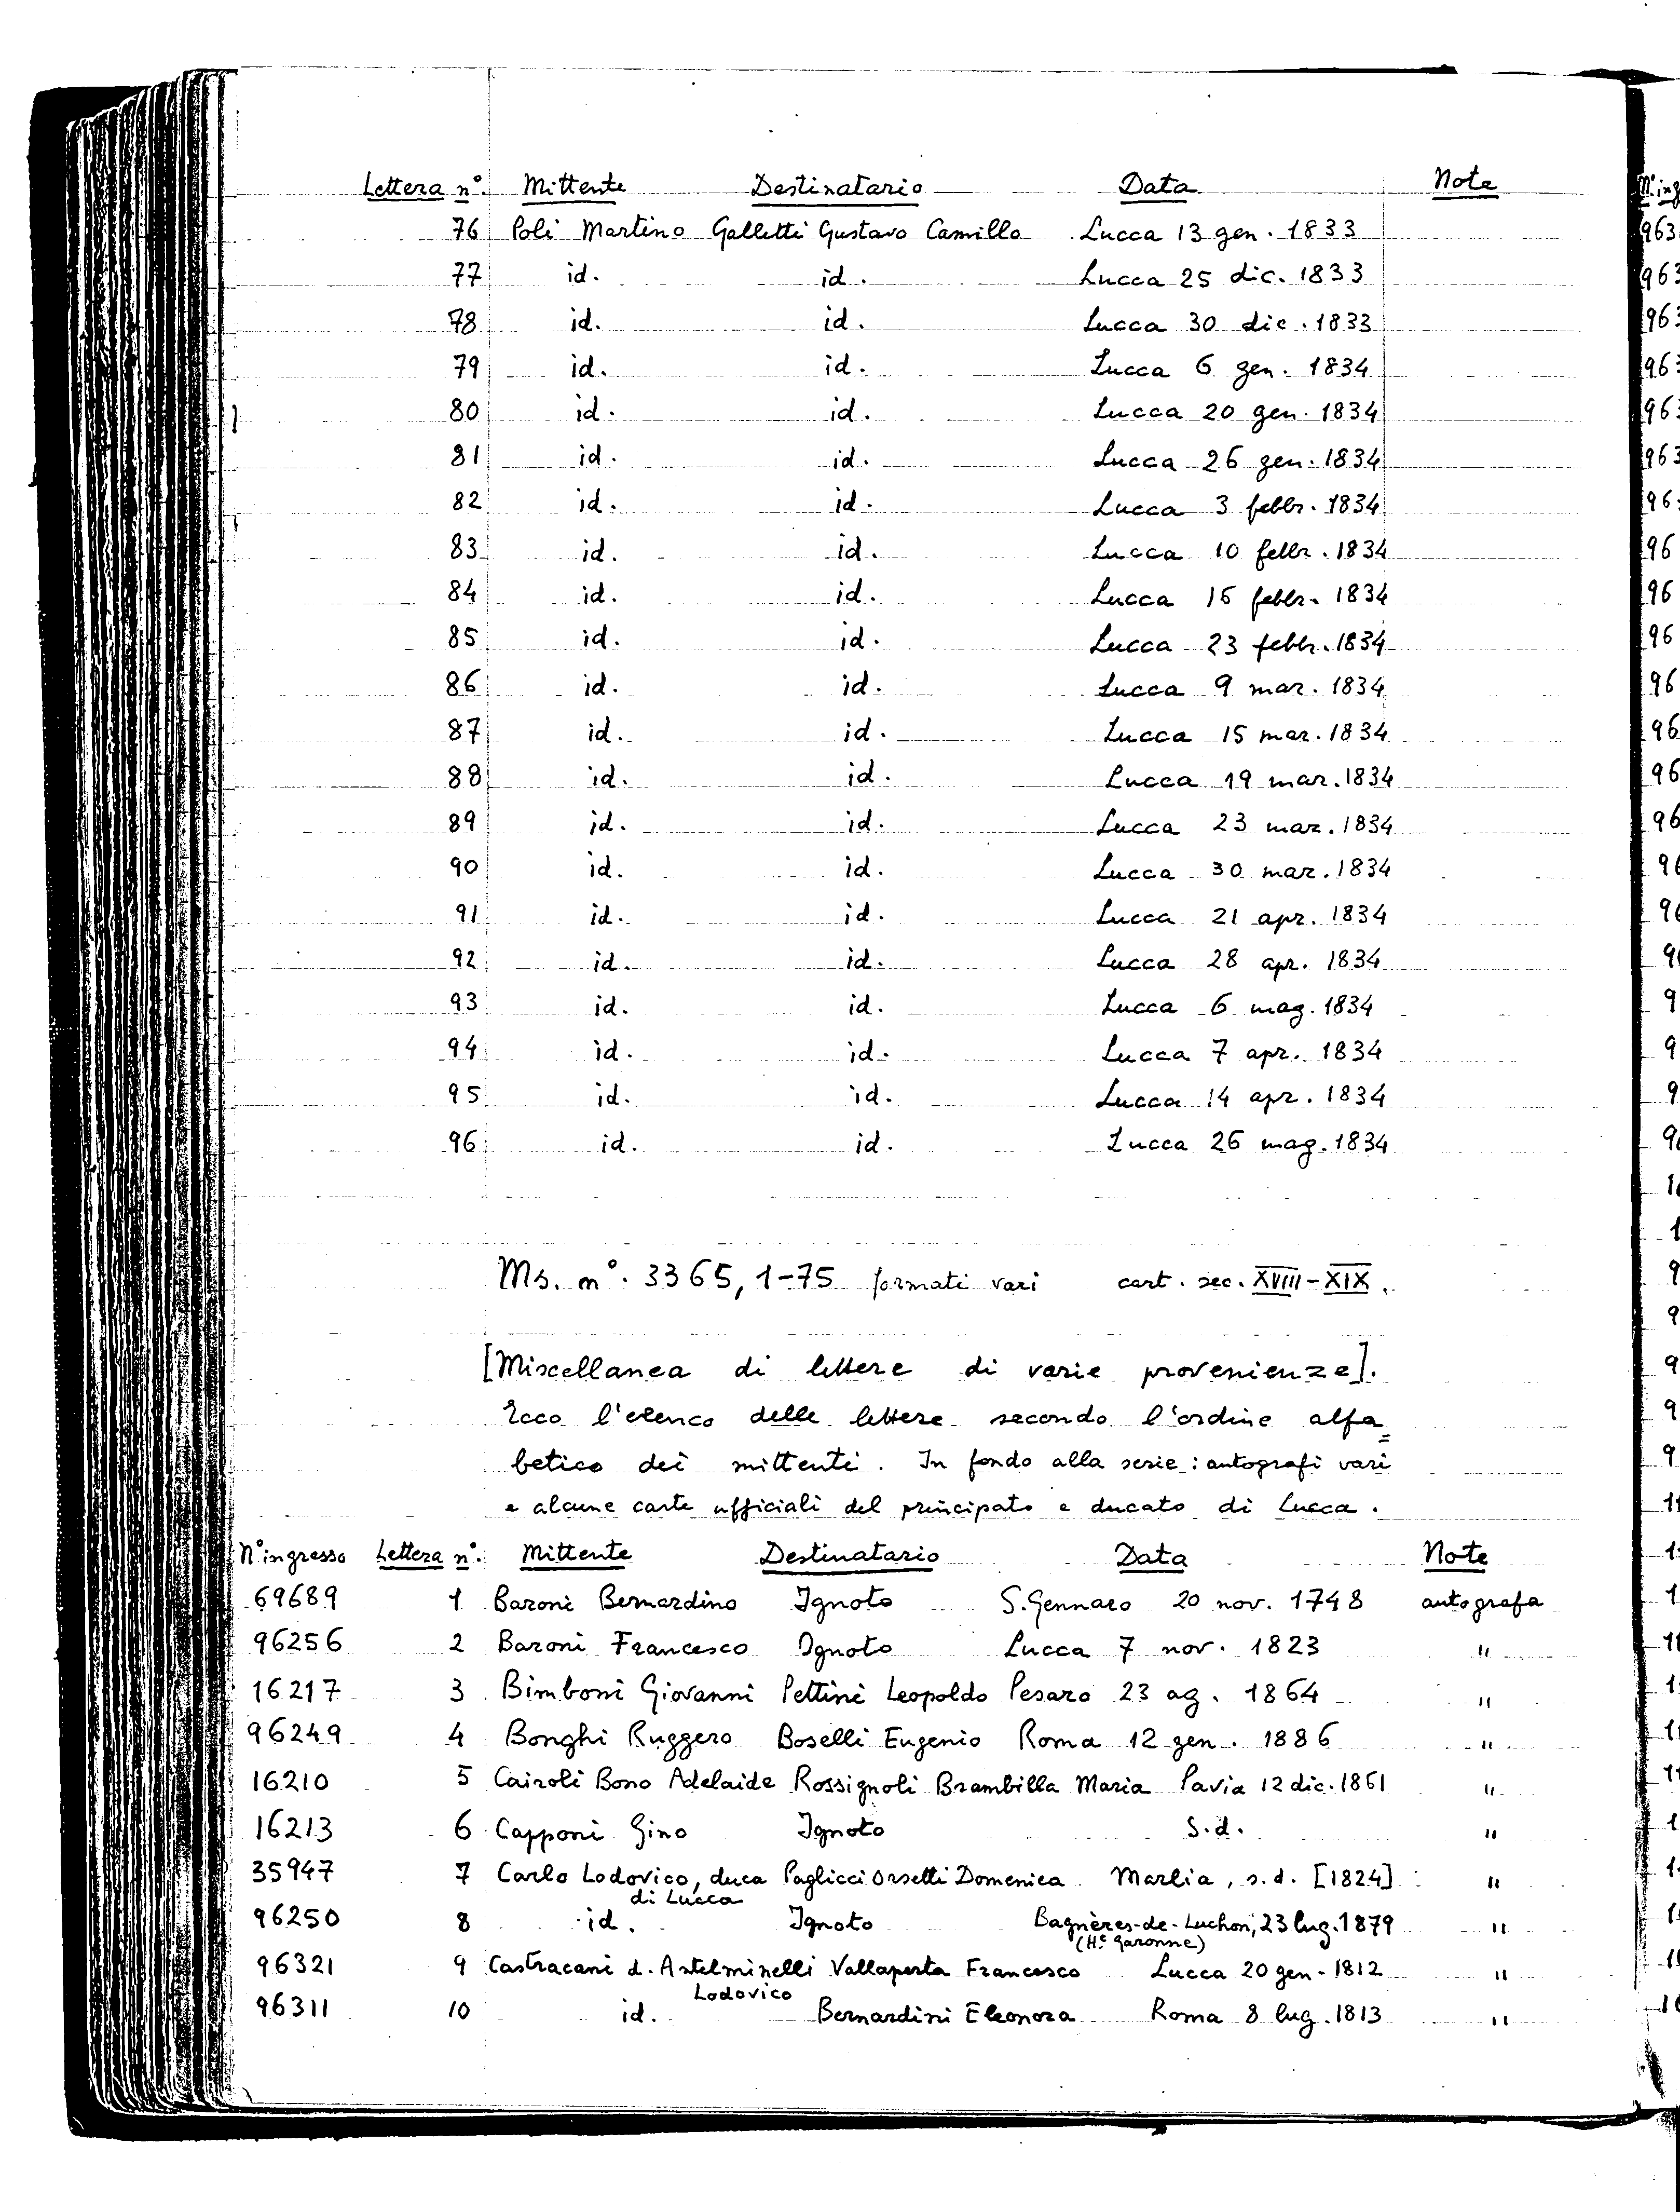 Lettera n°. Mittente Destinatario Data Note
76 Poli Martino Galletti Gustavo Camillo Lucca 13 gen. 1833
77 id. id. Lucca 25 dic. 1833
78 id. id. Lucca 30 dic. 1833
79 id. id. Lucca 6 gen. 1834
80 id. id. Lucca 20 gen. 1834
81 id. id. Lucca 26 gen. 1834
82 id. id. Lucca 3 febbr. 1834
83 id. id. Lucca 10 febbr. 1834
84 id. id. Lucca 16 febbr. 1834
85 id. id. Lucca 23 febbr. 1834
86 id. id. Lucca 9 mar. 1834
87 id. id. Lucca 15 mar. 1834
88 id. id. Lucca 19 mar. 1834
89 id. id. Lucca 23 mar. 1834
90 id. id. Lucca 30 mar. 1834
91 id. id. Lucca 21 apr. 1834
92 id. id. Lucca 28 apr. 1834
93 id. id. Lucca 6 mag. 1834
94 id. id. Lucca 7 apr. 1834
95 id. id. Lucca 14 apr. 1834
96 id. id. Lucca 26 mag. 1834
Ms. n°. 3365, 1-75 formati vari cart. sec. XVIII-XIX.
[Miscellanea di lettere di varie provenienze].
Ecco l'elenco delle lettere secondo l'ordine alfa=
betico dei mittenti. In fondo alla serie: autografi vari
e alcune carte ufficiali del principato e ducato di Lucca.
N° ingresso Lettera n°. Mittente Destinatario Data Note
69689 1 Baroni Bernardino Ignoto S. Gennaro 20 nov. 1748 autografa
96256 2 Baroni Francesco Ignoto Lucca 7 nov. 1823 "
16217 3 Bimboni Giovanni Pettini Leopoldo Pesaro 23 ag. 1864 "
96249 4 Bonghi Ruggero Boselli Eugenio Roma 12 gen. 1886 "
16210 5 Cairoli Bono Adelaide Rossignoli Brambilla Maria Pavia 12 dic. 1861 "
16213 6 Capponi Gino Ignoto S.d. "
35947 7 Carlo Lodovico, duca Paglicci Orsetti Domenica Marlia, s.d. [1824] "
di Lucca
96250 8 id. Ignoto Bagnères-de-Luchon, 23 lug. 1879 "
(Hᵉ Garonne)
96321 9 Castracani d. Antelminelli Vallaperta Francesco Lucca 20 gen. 1812 "
Lodovico
96311 10 id. Bernardini Eleonora Roma 8 lug. 1813 "